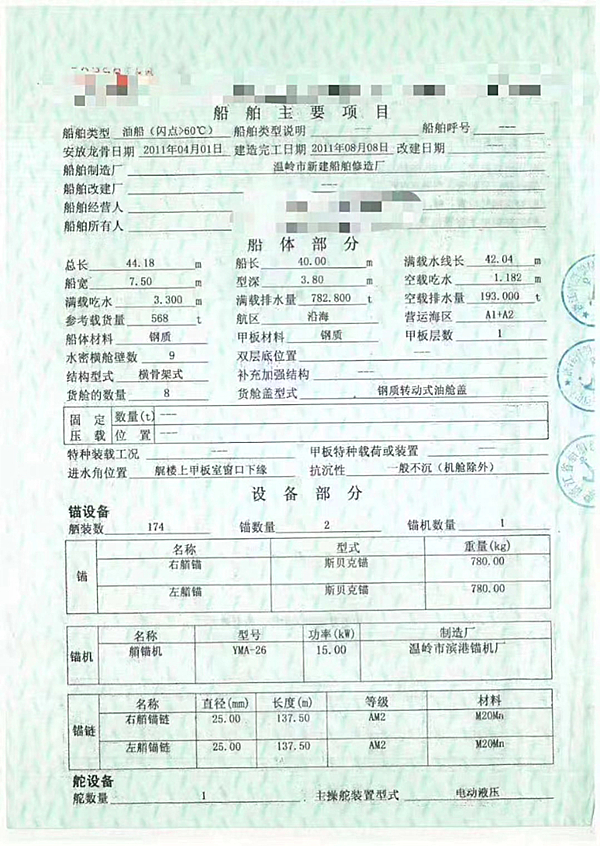 船舶主要项目
船舶类型 油船（闪点>60℃） 船舶类型说明 --- 船舶呼号 ---
安放龙骨日期 2011年04月01日 建造完工日期 2011年08月08日 改建日期 ---
船舶制造厂 温岭市新建船舶修造厂
船舶改建厂 ---
船舶经营人
船舶所有人
船体部分
总长 44.18 m 船长 40.00 m 满载水线长 42.04 m
船宽 7.50 m 型深 3.80 m 空载吃水 1.182 m
满载吃水 3.300 m 满载排水量 782.800 t 空载排水量 193.000 t
参考载货量 568 t 航区 沿海 营运海区 A1+A2
船体材料 钢质 甲板材料 钢质 甲板层数 1
水密横舱壁数 9 双层底位置 ---
结构型式 横骨架式 补充加强结构 ---
货舱的数量 8 货舱盖型式 钢质转动式油舱盖
固定 数量(t) ---
压载 位置 ---
特种装载工况 --- 甲板特种载荷或装置 ---
进水角位置 艉楼上甲板室窗口下缘 抗沉性 一般不沉（机舱除外）
设备部分
锚设备
舾装数 174 锚数量 2 锚机数量 1
锚 名称 型式 重量(kg)
右艏锚 斯贝克锚 780.00
左艏锚 斯贝克锚 780.00
锚机 名称 型号 功率(kW) 制造厂
艏锚机 YMA-26 15.00 温岭市滨港锚机厂
锚链 名称 直径(mm) 长度(m) 等级 材料
右艏锚链 25.00 137.50 AM2 M20Mn
左艏锚链 25.00 137.50 AM2 M20Mn
舵设备
舵数量 1 主操舵装置型式 电动液压